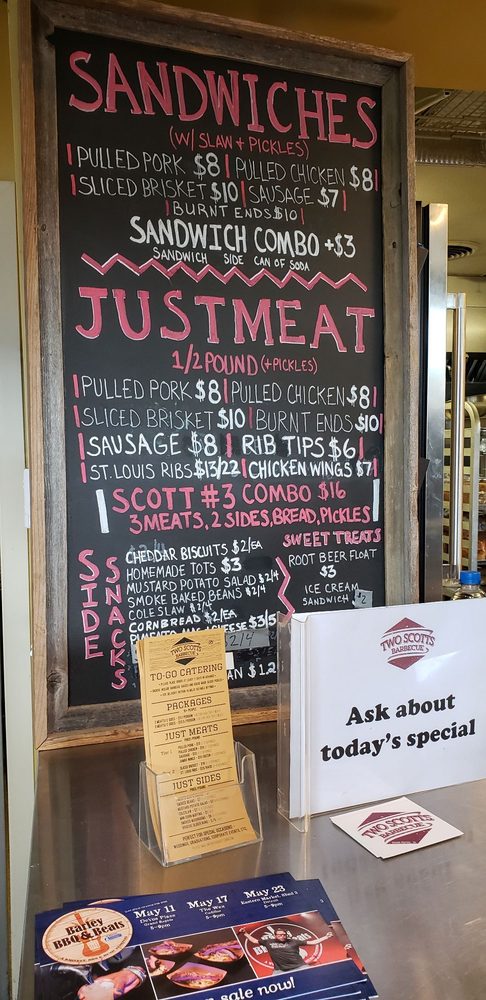 SANDWICHES
(W/ SLAW + PICKLES)
PULLED PORK $8 | PULLED CHICKEN $8
SLICED BRISKET $10 | SAUSAGE $7
BURNT ENDS $10
SANDWICH COMBO +$3
SANDWICH SIDE CAN OF SODA
JUST MEAT
1/2 POUND (+PICKLES)
PULLED PORK $8 | PULLED CHICKEN $8
SLICED BRISKET $10 | BURNT ENDS $10
SAUSAGE $8 | RIB TIPS $6
ST. LOUIS RIBS $13/22 | CHICKEN WINGS $7
SCOTT #3 COMBO $16
3 MEATS, 2 SIDES, BREAD, PICKLES
SIDE
SNACKS
CHEDDAR BISCUITS $2/EA
HOMEMADE TOTS $3
MUSTARD POTATO SALAD $2/4
SMOKE BAKED BEANS $2/4
COLE SLAW $2/4
CORNBREAD $2/EA
CHEESE $3/5
$2/4
SWEET TREATS
ROOT BEER FLOAT
$3
ICE CREAM
SANDWICH $2
TWO SCOTTS
BARBECUE
TO-GO CATERING
PACKAGES
JUST MEATS
JUST SIDES
PERFECT FOR SPECIAL OCCASIONS
WEDDINGS, GRADUATIONS, CORPORATE EVENTS, ETC.
TWO SCOTTS
BARBECUE
Ask about
today's special
TWO SCOTTS
BARBECUE
BBQ & Beats
May 11
5-9pm
May 17
5-9pm
May 23
Eastern Market, Shed 3
Detroit
5-9pm
on sale now!